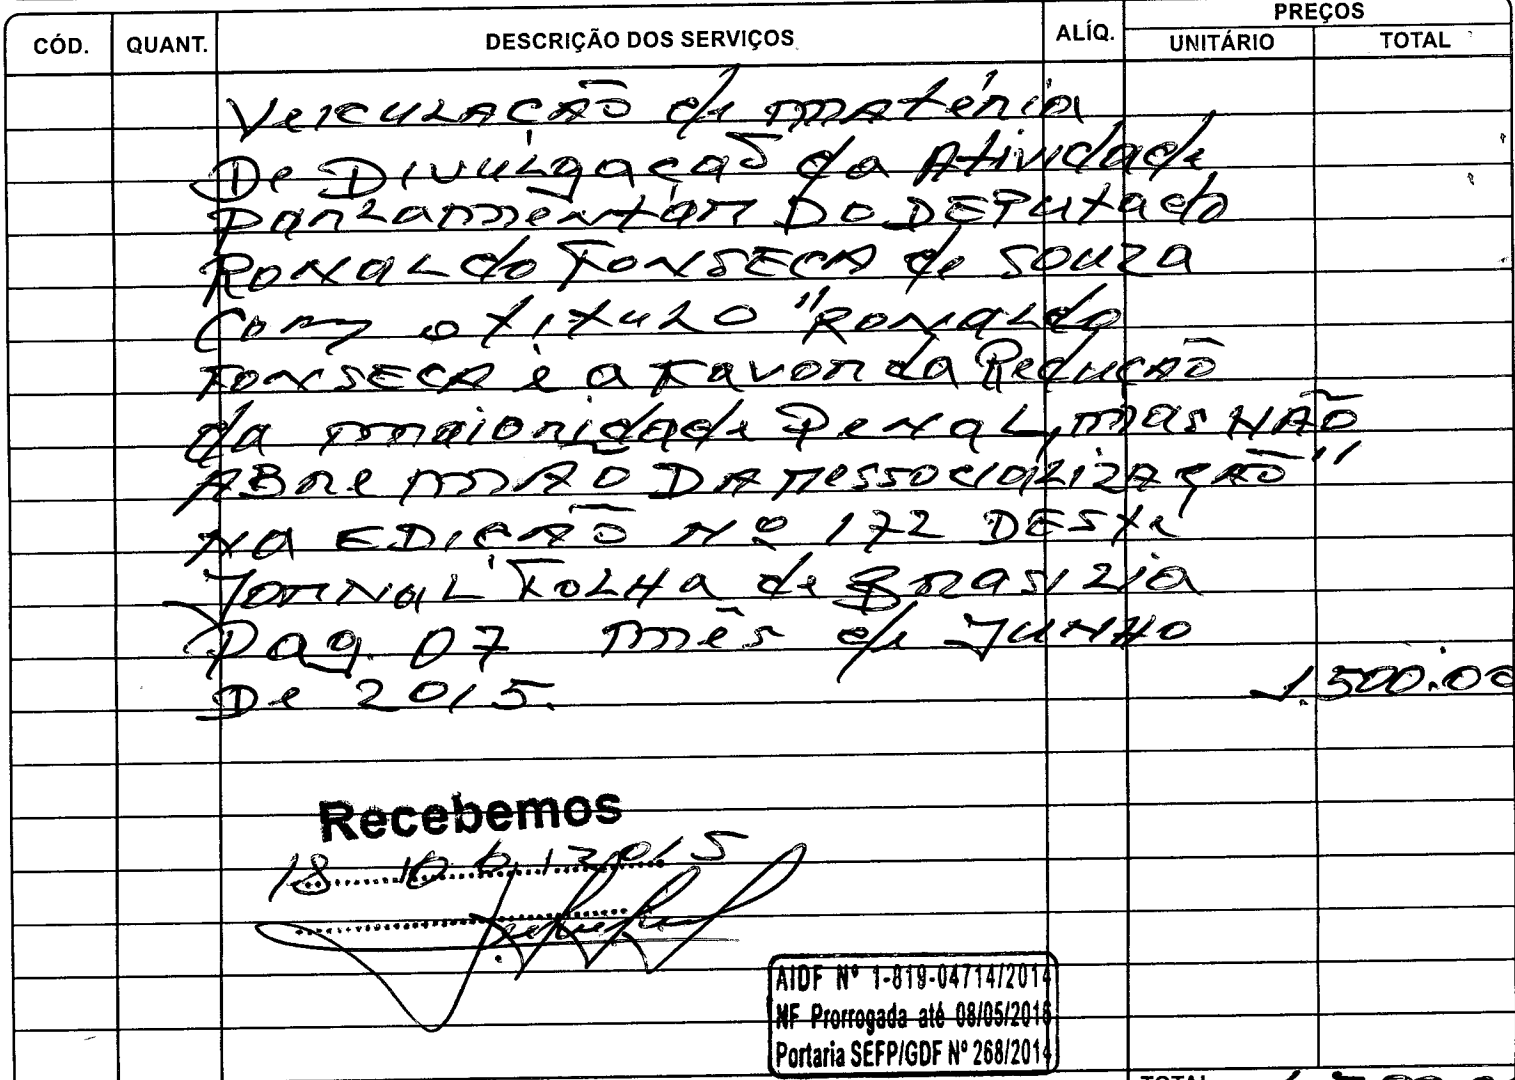 CÓD. QUANT. DESCRIÇÃO DOS SERVIÇOS ALÍQ. PREÇOS
UNITÁRIO TOTAL
Veiculação de matéria
De Divulgação da Atividade
Parlamentar Do Deputado
Ronaldo Fonseca de Souza
Com o título "Ronaldo
Fonseca é a favor da Redução
da maioridade Penal, mas NÃO
ABre mÃO DA ressocialização"
NA EDIÇÃO Nº 172 DESTE
Jornal Folha de Brasilia
Pag. 07 mês de JUNHO
De 2015. 1.500.00
Recebemos
AIDF Nº 1-819-04714/2014
NF Prorrogada até 08/05/2016
Portaria SEFP/GDF Nº 268/2014
TOTAL